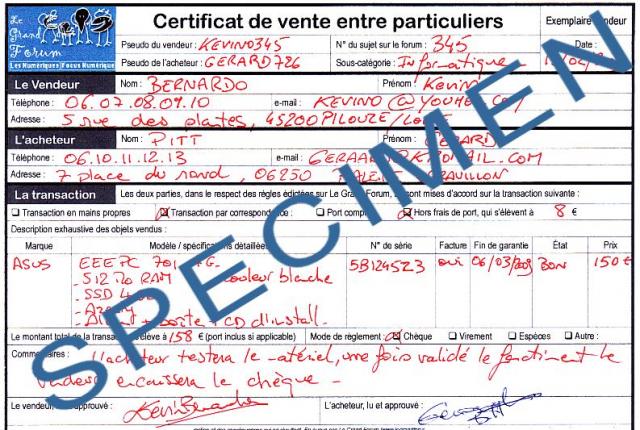 Le Grand Forum
Les Numériques | Focus Numérique
Certificat de vente entre particuliers
Exemplaire
Pseudo du vendeur : KEVIN0345
N° du sujet sur le forum : 345
Date :
Pseudo de l'acheteur : GERARD726
Sous-catégorie : Informatique
Le Vendeur
Nom : BERNARDO
Prénom : Kevin
Téléphone : 06.07.08.09.10
e-mail : KEVINO@
Adresse : 5 rue des plantes, 45200 PILOUZE/
L'acheteur
Nom : PITT
Prénom : GERARD
Téléphone : 06.10.11.12.13
e-mail :
Adresse : 7 place du nord, 06250
La transaction
Les deux parties, dans le respect des règles édictées sur Le Grand Forum, sont mises d'accord sur la transaction suivante :
Transaction en mains propres
Transaction par correspondance :
Port compris
Hors frais de port, qui s'élèvent à 8 €
Description exhaustive des objets vendus :
Marque
Modèle / spécifications détaillées
N° de série
Facture
Fin de garantie
État
Prix
ASUS
EEE PC 701 4G
5B124523
oui
06/03/2009
BON
150 €
- 512 Mo RAM
couleur blanche
- SSD
+ boîte + CD d'install.
Le montant total de la transaction s'élève à 158 € (port inclus si applicable)
Mode de règlement :
Chèque
Virement
Espèces
Autre :
Commentaires : L'acheteur testera le matériel, une fois validé le
vendeur encaissera le chèque -
Le vendeur, lu et approuvé :
L'acheteur, lu et approuvé :
SPECIMEN